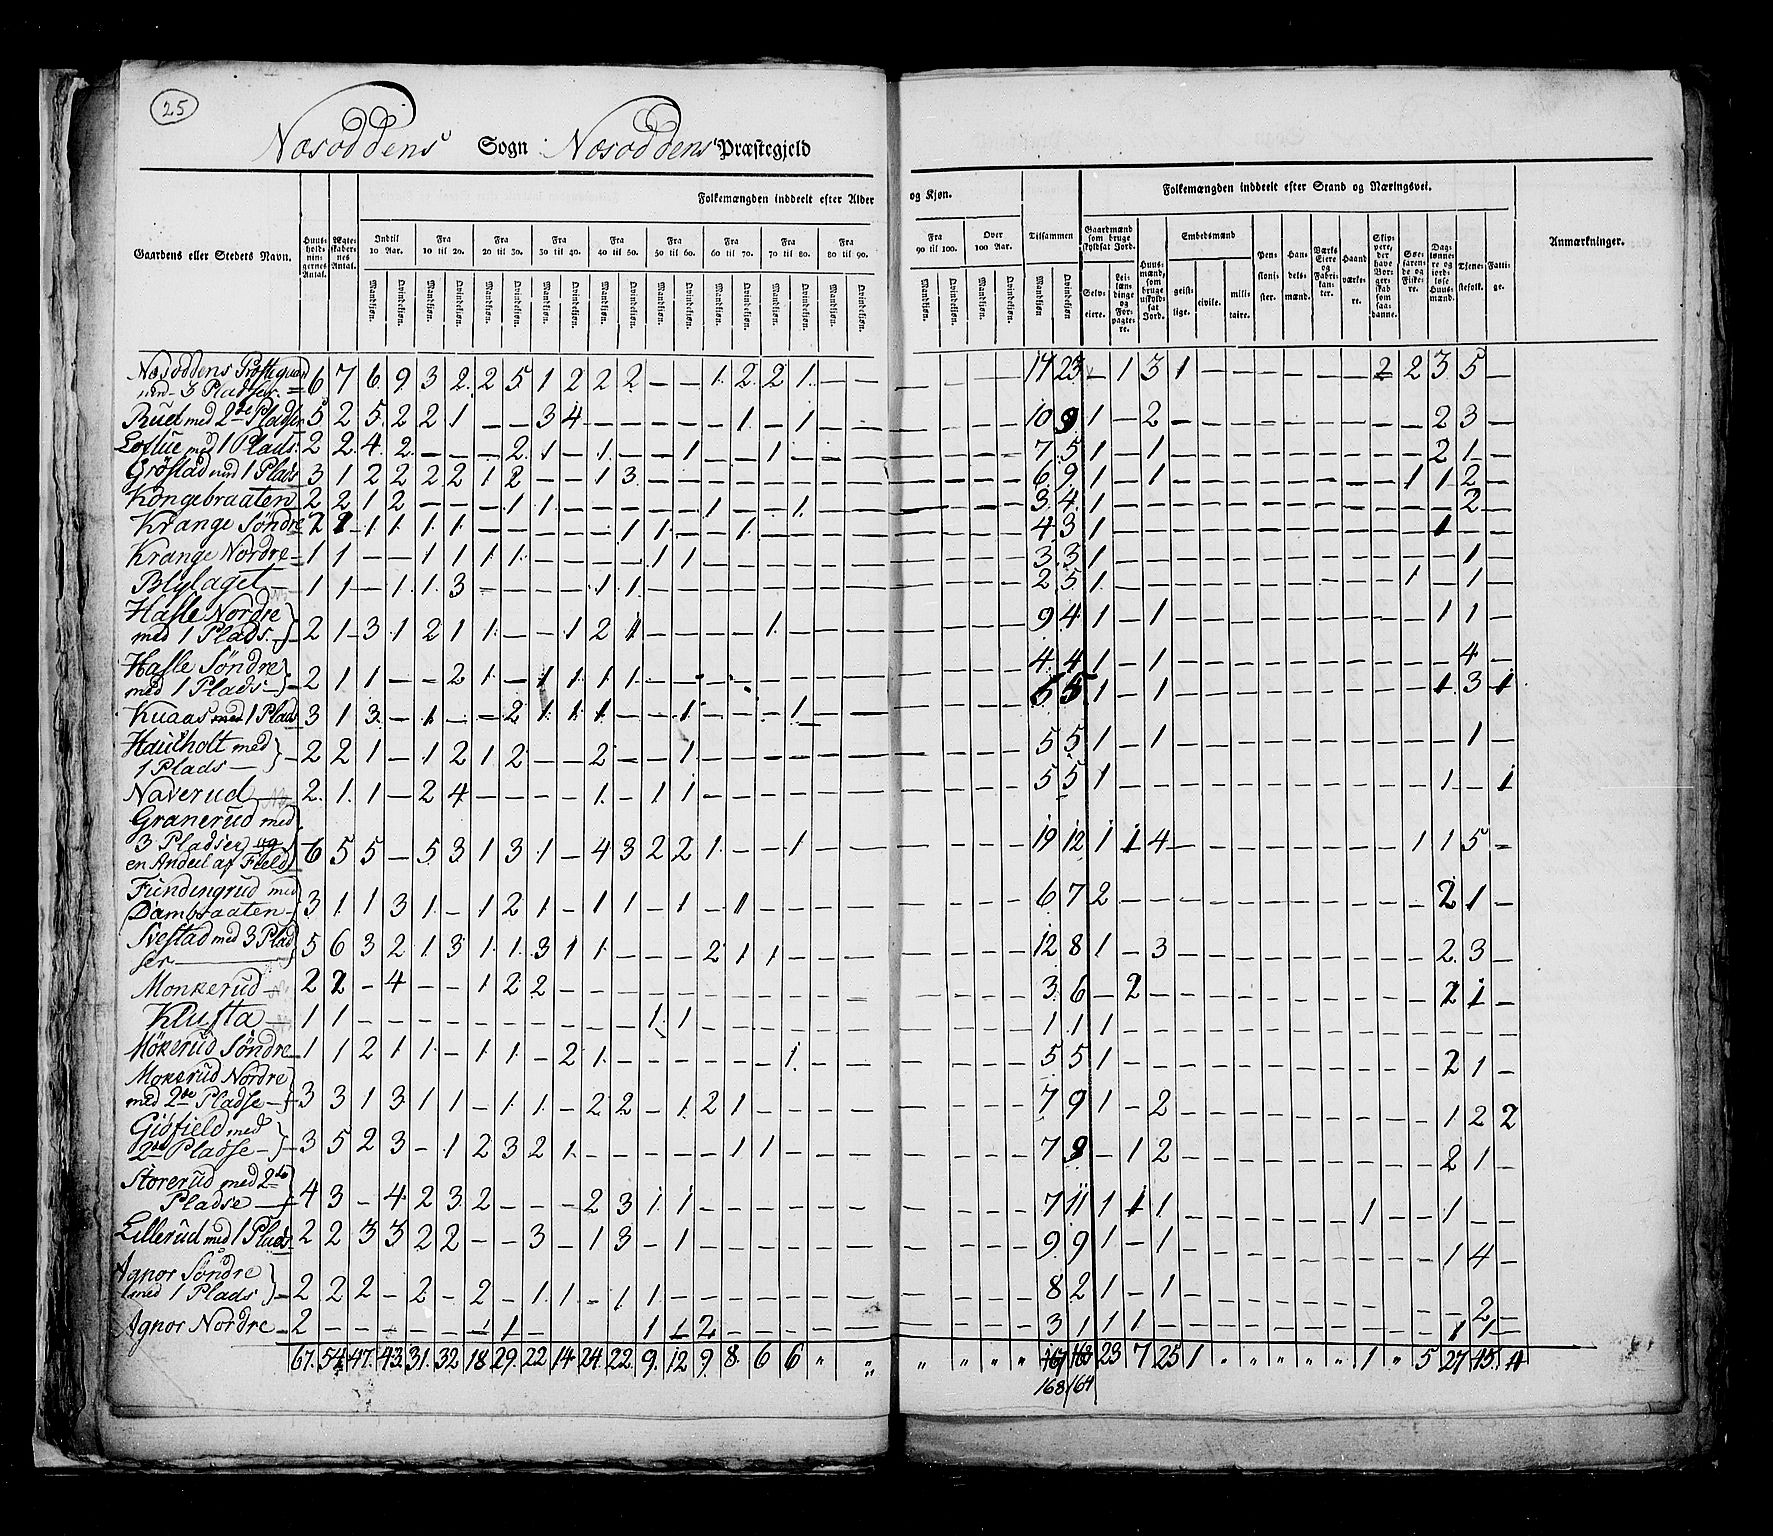 25
Næsoddens Sogn Næsoddens Præstegjeld
Gaardens eller Stedets Navn.
Huusholdningernes Antal.
Ægteskabernes Antal.
Folkemængden inddeelt efter Alder og Kjøn.
Indtil 10 Aar.
Fra 10 til 20.
Fra 20 til 30.
Fra 30 til 40.
Fra 40 til 50.
Fra 50 til 60.
Fra 60 til 70.
Fra 70 til 80.
Fra 80 til 90.
Fra 90 til 100.
Over 100 Aar.
Tilsammen
Mandkjøn. Qvindekjøn.
Folkemængden inddeelt efter Stand og Næringsvei.
Gaardmænd som bruge skyldsat Jord.
Selveiere.
Leilændinge og Forpagtere.
Huusmænd, som bruge uskyldsat Jord.
Embedsmænd
geistlige.
civile.
militaire.
Pensionister.
Handelsmænd.
Værks Eiere og Fabrikanter.
Haandværkere.
Skippere, der have Borgerskab som saadanne.
Søefarende og Fiskere.
Daglønnere og jordløse Huusmænd.
Tjenestefolk.
Fattige.
Anmærkninger.
Næsoddens Præstegaard
med 3 Pladser. 6 7 6 9 3 2 2 5 1 2 2 2 – – 1 2 2 1 – – 14 23 – 1 3 1 – – – – – – 2 2 3 5 –
Rud med 2de Pladser 5 2 5 2 2 1 – – 3 4 – – – – – 1 – 1 – – 10 9 1 – 2 – – – – – – – – – 2 3 –
Loflue med 1 Plads 2 2 4 2 – – – 2 1 – 1 – – 1 – 1 – 1 – – 7 5 1 – 1 – – – – – – – – – 2 1 –
Gröstad med 1 Plads 3 1 2 2 2 2 1 2 – – 1 3 – – – – – – – – 6 9 1 – 1 – – – – – – – – 1 1 2 –
Kongebraaten 2 2 1 2 – – – 1 1 – – – – – 1 – – 1 – – 3 4 1 – – – – – – – – – – – – 2 –
Krange Söndre 2 2 1 1 1 1 – – – – – 1 1 – – 1 – – – – 4 3 1 – – – – – – – – – – – 1 – –
Krange Nordre 1 1 – – 1 1 1 1 – – – – 1 1 – – – – – – 3 3 1 – – – – – – – – – – – – 1 –
Blylaget 1 1 – 1 1 3 – – – – 1 1 – – – – – – – – 2 5 1 – – – – – – – – – – 1 – 1 –
Hasle Nordre
med 1 Plads. 2 1 3 1 2 1 1 – – 1 2 1 – – – – 1 – – – 9 4 1 – 1 – – – – – – – – – 1 1 –
Hasle Söndre
med 1 Plads 2 1 1 – – 2 1 – 1 1 1 1 – – – – – – – – 4 4 1 – 1 – – – – – – – – – – 4 –
Knaas med 1 Plads 3 1 3 – 1 – – 2 1 1 1 – – 1 – – – 1 – – 5 5 1 – 1 – – – – – – – – – 1 3 1
Hautholt med
1 Plads 2 2 1 – 1 2 1 2 – – 2 – – 1 – – – – – – 5 5 1 – 1 – – – – – – – – – – 1 –
Naverud 2 1 1 – 2 4 – – – – 1 – 1 1 – – – – – – 5 5 1 – – – – – – – – – – – 1 – 1
Granerud med
3 Pladser og
en Andeel af Field 6 5 5 – 5 3 1 3 1 – 4 3 2 2 1 – – 1 – – 19 12 1 1 4 – – – – – – – – 1 1 5 –
Fundingrud med
Dambraaten 3 1 1 3 1 – 1 2 1 – 1 1 – 1 – 1 – – – – 6 7 2 – – – – – – – – – – – 2 1 –
Svestad med 3 Plad
ser 5 6 3 2 1 3 1 1 3 1 1 – – – 2 1 1 – – – 12 8 1 – 3 – – – – – – – – – 2 3 –
Monkerud 2 2 – 4 – – 1 2 2 – – – – – – – – – – – 3 6 – 2 – – – – – – – – – – 2 1 –
Klufta 1 1 – – – – – – – – – – 1 1 – – – – – – 1 1 1 – – – – – – – – – – – – – –
Mökerud Söndre 1 1 2 1 1 – 1 1 – 2 1 – – – – – – 1 – – 5 5 1 – – – – – – – – – – – 2 1 –
Mokerud Nordre
med 2de Pladse 3 3 1 3 1 1 – 1 1 – 2 2 – 1 2 1 – – – – 7 9 1 – 2 – – – – – – – – – 1 2 2
Giöfield med
2de Pladse 3 5 2 3 – 1 2 3 2 1 – – – – – 1 1 – – – 7 9 – 1 2 – – – – – – – – – 2 1 –
Storerud med 2de
Pladse 4 3 – 4 2 3 2 – – – 2 3 1 1 – – – – – – 7 11 1 1 1 – – – – – – 1 – – 1 – –
Lillerud med 1 Plads 2 2 3 3 2 2 – – 3 – 1 3 – 1 – – – – – – 9 9 1 – 1 – – – – – – – – – 1 4 –
Agnor Söndre
med 1 Plads 2 2 2 – 2 – 2 – 1 1 – 1 1 – – – – – – – 8 2 1 – 1 – – – – – – – – – – 2 –
Agnor Nordre 2 – – – – – – 1 – – – – 1 – 2 – – – – – 3 1 1 1 – – – – – – – – – – 1 1 –
67. 54. 47. 43. 31. 32. 18. 29. 22 14. 24. 22. 9. 12 9. 8. 6 6 " " " " " " 167 163 23 7 25 1 " " " " " 1 " 5 27 45. 4
168 164